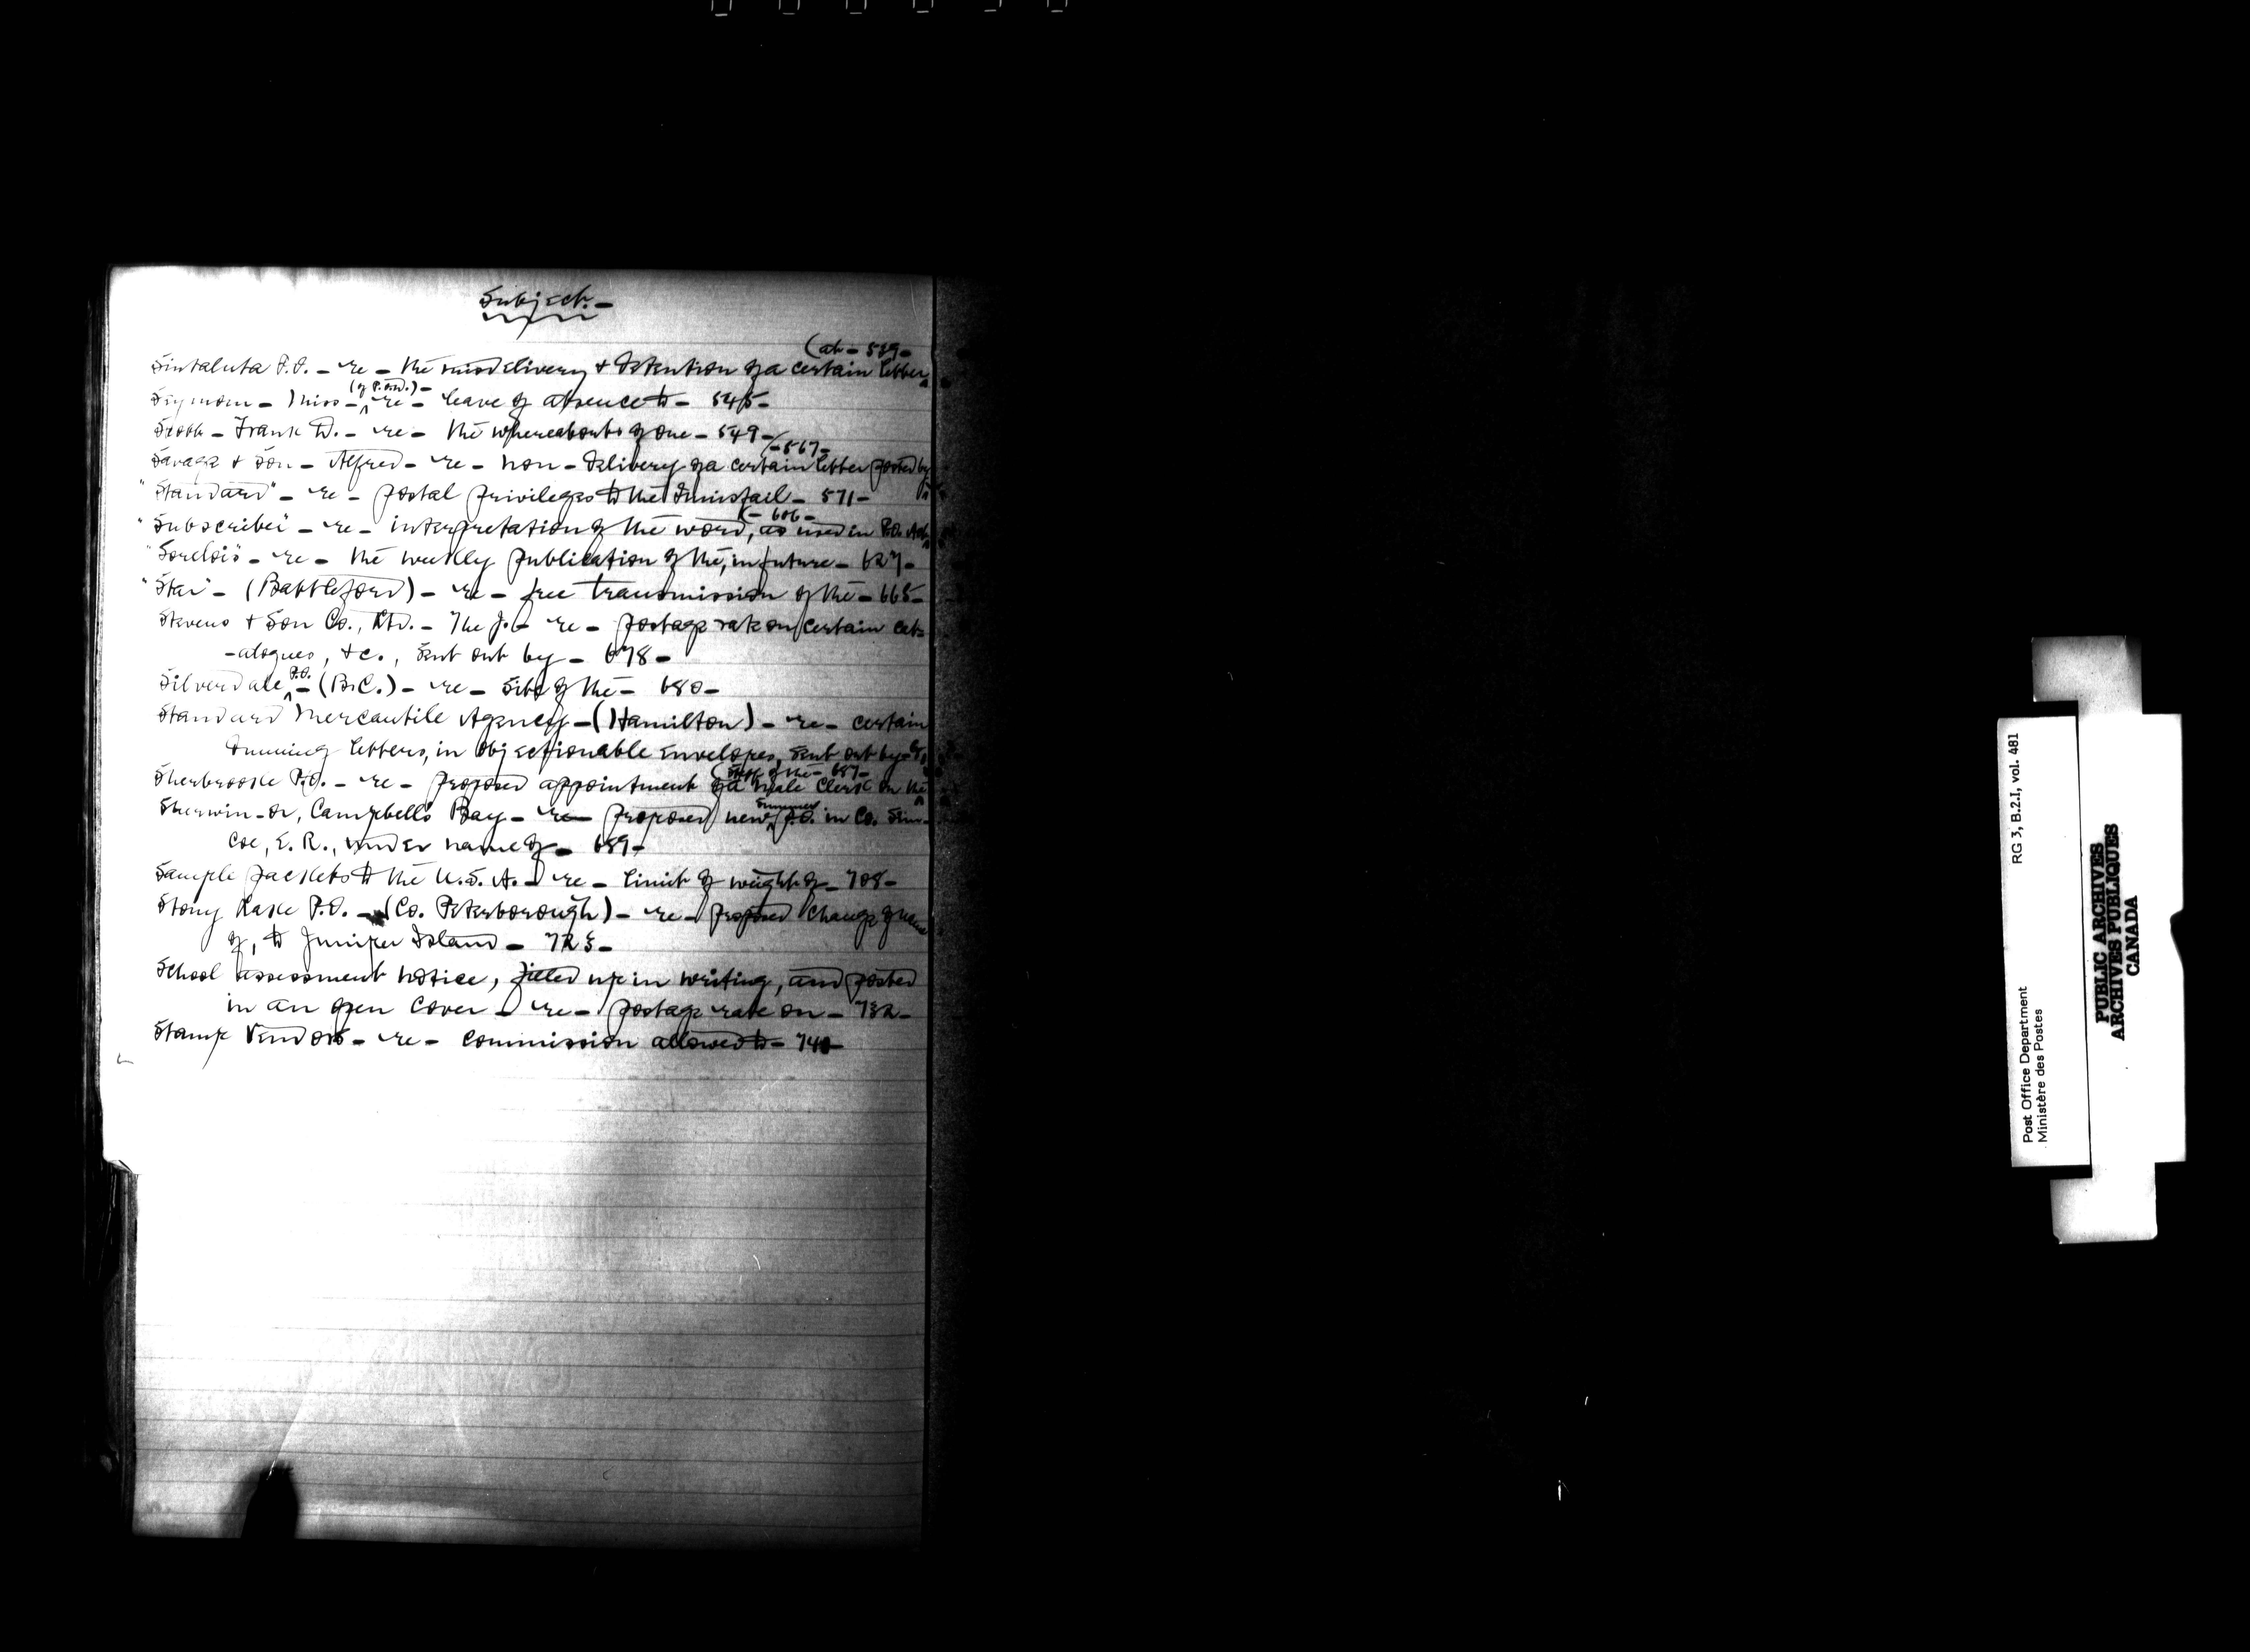 Subject.-
(at - 539-
Sintaluta P.O. - re - the misdelivery & detention of a certain letter
(of P.O.D.) -
- Miss - re - leave of absence to - 545-
Scott - Frank D. - re - the whereabouts of one - 549 -
(- 567 -
Savage & Son - Alfred - re - non-delivery of a certain letter posted by
"Standard" - re - postal privileges to the Innisfail - 571 -
(- 606 -
"Subscriber" - re - interpretation of the word, as used in P.O. Act
"Sorelois" - re - the weekly publication of the, in future - 627 -
"Star" - (Battleford) - re - free transmission of the - 665 -
Stevens & Son Co., Ltd. - The J. - re - postage rate on certain cat-
-alogues, &c., sent out by - 678 -
P.O.
Silverdale - (B.C.) - re - site of the - 680 -
Standard Mercantile Agency - (Hamilton) - re - certain
dunning letters, in objectionable envelopes, sent out by -
(Staff of the - 687 -
Sherbrooke P.O. - re - proposed appointment of a male clerk on the
Summer
Sherwin - or, Campbell's Bay - re - proposed new P.O. in Co. Sim-
coe, E. R., under name of - 689 -
Sample packets to the U.S.A. - re - limit of weight of - 708 -
Stony Lake P.O. - (Co. Peterborough) - re - proposed change of name
of, to Juniper Island - 723 -
School assessment notice, filled up in writing, and posted
in an open cover - re - postage rate on - 732 -
Stamp Vendors - re - commission allowed to -
RG 3, B.2.I, vol. 481
Post Office Department
Ministère des Postes
PUBLIC ARCHIVES
ARCHIVES PUBLIQUES
CANADA